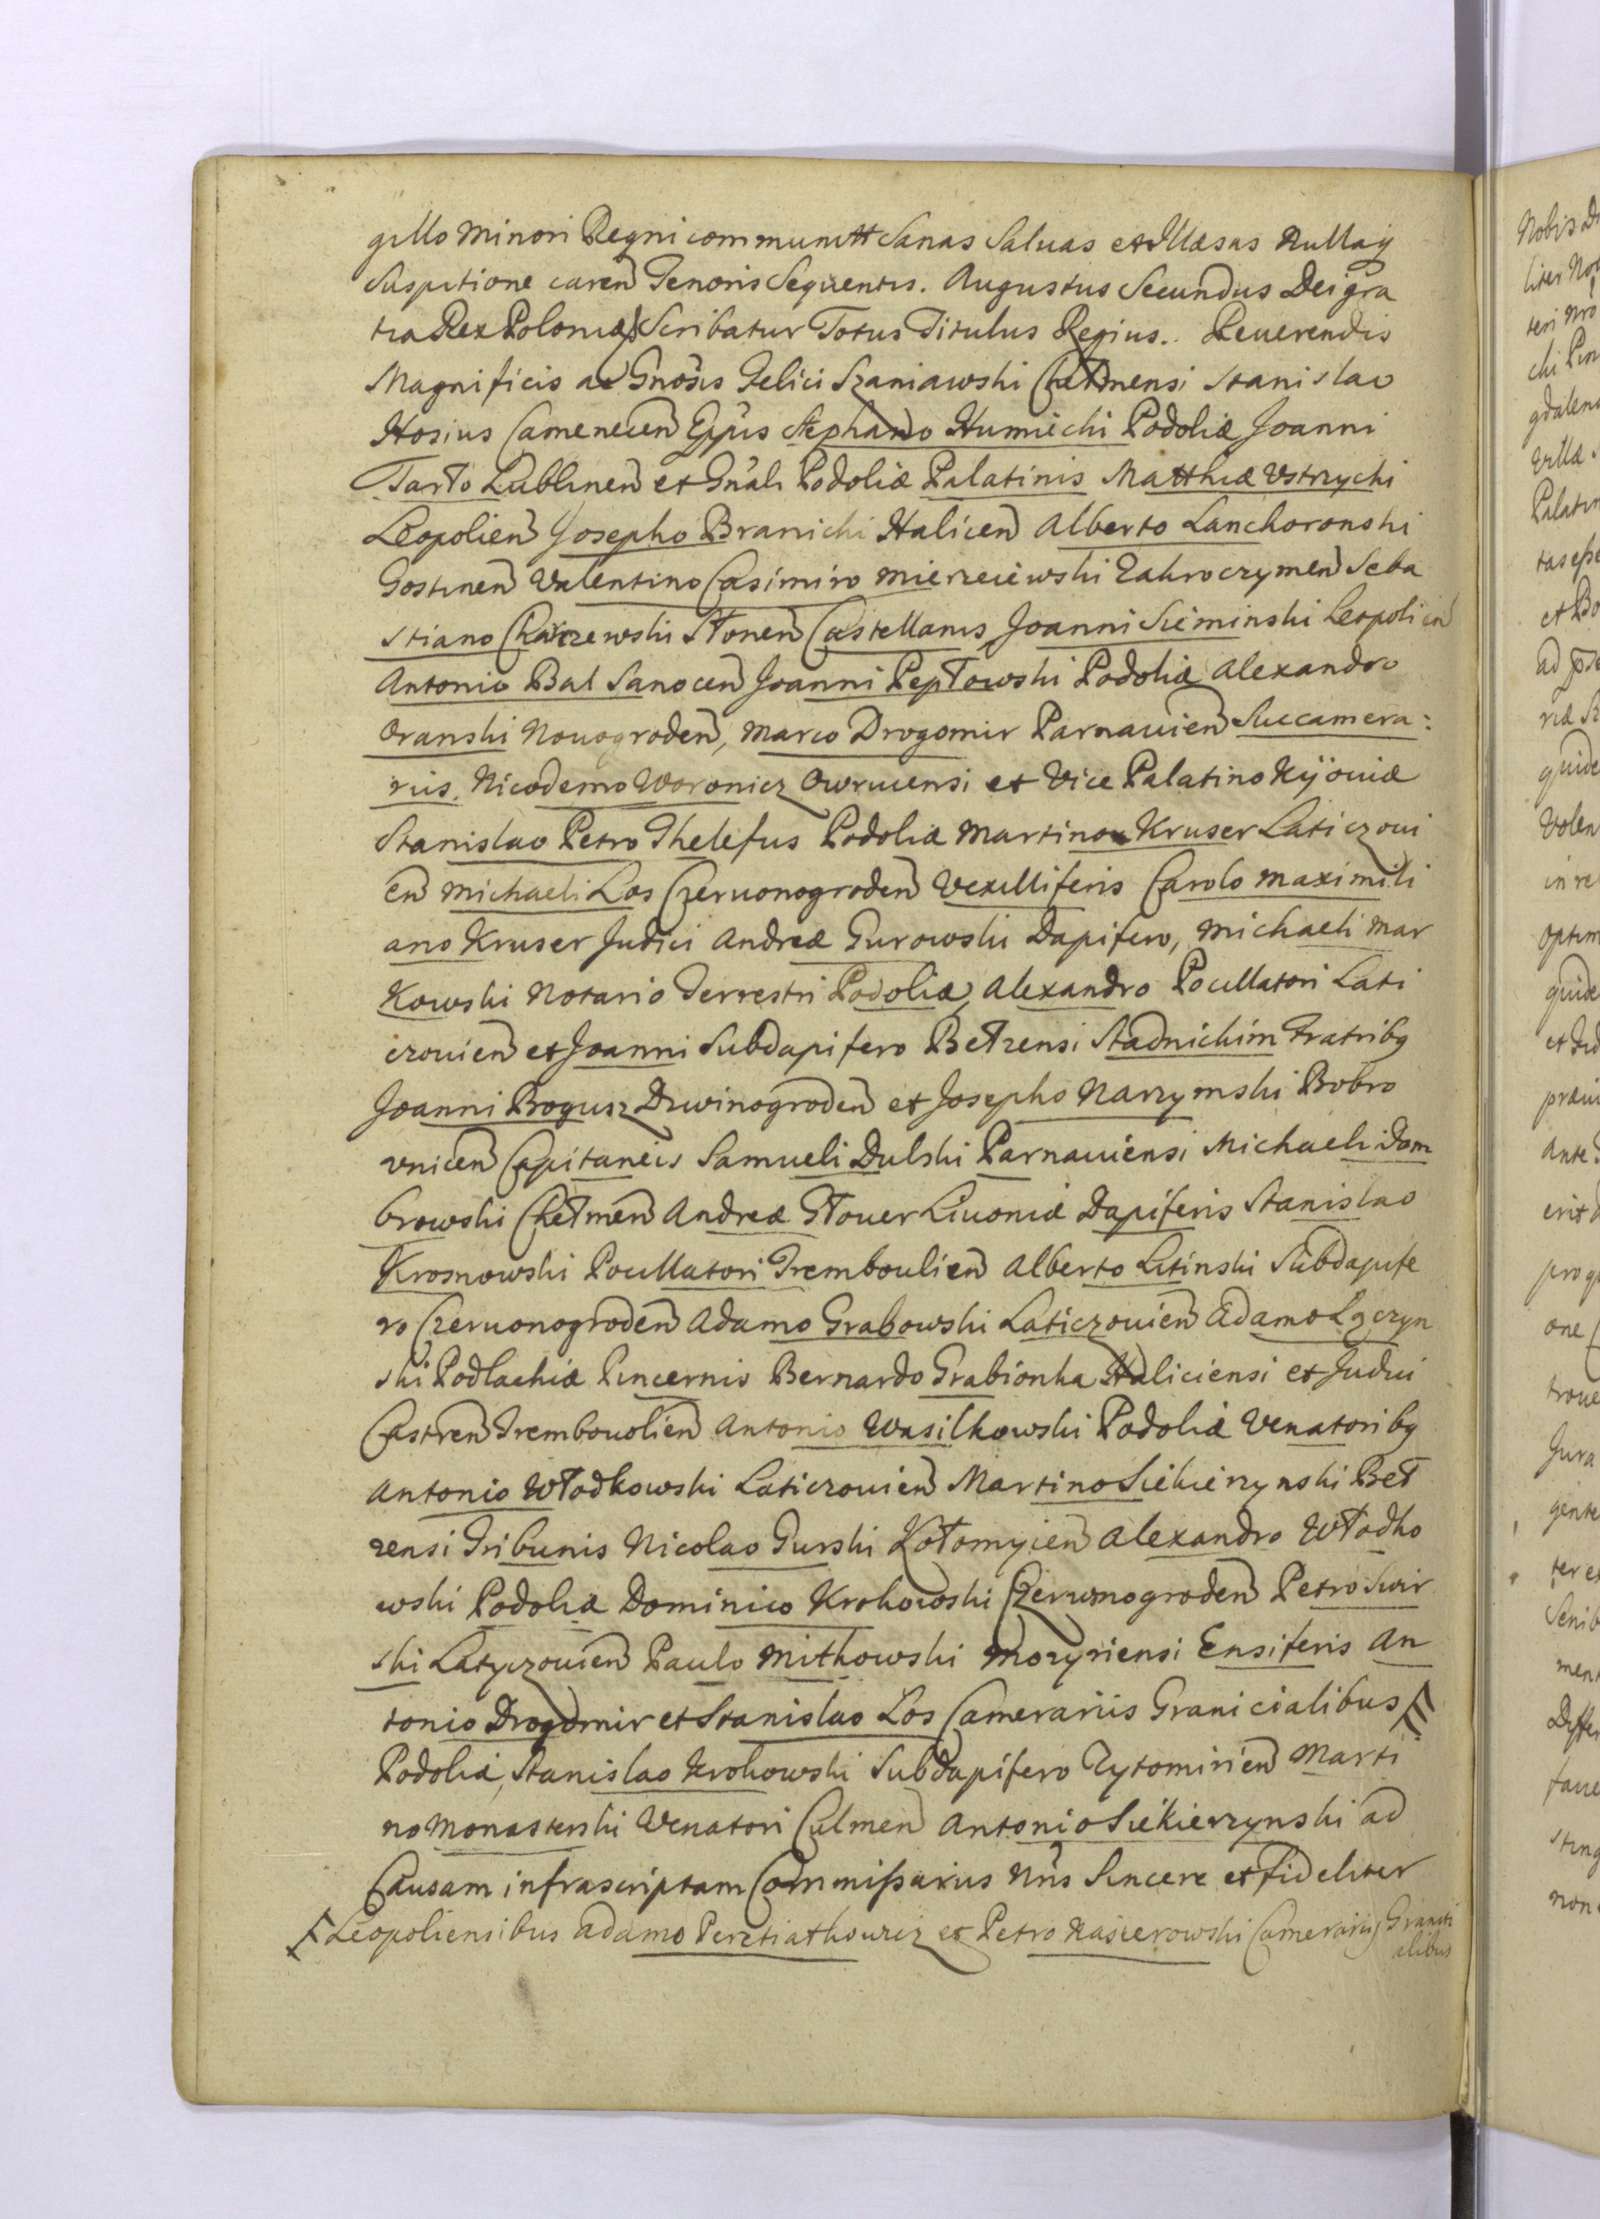 gillo Minori Regni communitt Sanas Saluas et Illæsas Nullaq
Suspitione caren Tenoris Sequentis. Augustus Secundus Dei gra
tia Rex Poloniæ Scribatur Totus Titulus Regius.. Reuerendis
Magnificis ac Gnosis Felici Szaniawski Chełmensi Stanislao
Hosius Camenecen Eppus Stephano Humiecki Podoliæ Joanni
Tarło Lublinen et Gnali Podoliæ Palatinis Matthiæ Ustrzycki
Leopolien Josepho Branicki Halicen Alberto Lanckoronski
Gostinen Valentino Casimiro Mierzeiewski Zakroczymen Seba
stiano Charczewski Słonen Castellanis Joanni Sieminski Leopolien
Antonio Bal Sanocen Joanni Pepłowski Podoliæ Alexandro
Oranski Nouogroden, Marco Drogomir Parnauien Succamera:
riis. Nicodemo Woronicz Owrucensi et Vice Palatino Kijouiæ
Stanislao Petro Thelefus Podoliæ Martino Kruser Laticzoui
en Michaeli Los Czeruonogroden Vexilliferis Carolo Maximili
ano Kruser Judici Andreæ Gurowski Dapifero, Michaeli Mar
kowski Notario Terrestri Podoliæ, Alexandro Pocillatori Lati
czouien et Joanni Subdapifero Bełzensi Stadnickim Fratribg
Joanni Bogusz Dzwinogroden et Josepho Narzymski Bobro
vnicen Capitaneis Samueli Dulski Parnauiensi Michaeli Dom
browski Chełmen Andreæ Głouer Liuoniæ Dapiferis Stanislao
Krosnowski Pocillatori Tremboulien Alberto Litinski Subdapife
ro Czeruonogroden Adamo Grabowski Laticzouien Adamo Lączyn
ski Podlachiæ Pincernis Bernardo Grabionka Haliciensi et Judici
Castren Trembouolien Antonio Wasilkowski Podoliæ Venatoribg
Antonio Włodkowski Laticzouien Martino Siekierzynski Beł
zensi Tribunis Nicolao Gurski Kołomyien Alexandro Włodko
wski Podoliæ Dominico Krokowski Czeruonogroden Petro Swir
ski Latyczouien Paulo Mitkowski Mozyriensi Ensiferis An
tonio Drogomir et Stanislao Los Camerariis Granicialibus
Podoliæ, Stanislao Krokowski Subdapifero Zytomirien Marti
no Monasterski Venatori Culmen Antonio Siekierzynski ad
Causam infrascriptam Commissariis Nris Sincere et Fideliter
Leopoliensibus Adamo Peretiatkowicz et Petro Kasierowski Camerariis Granici
alibus